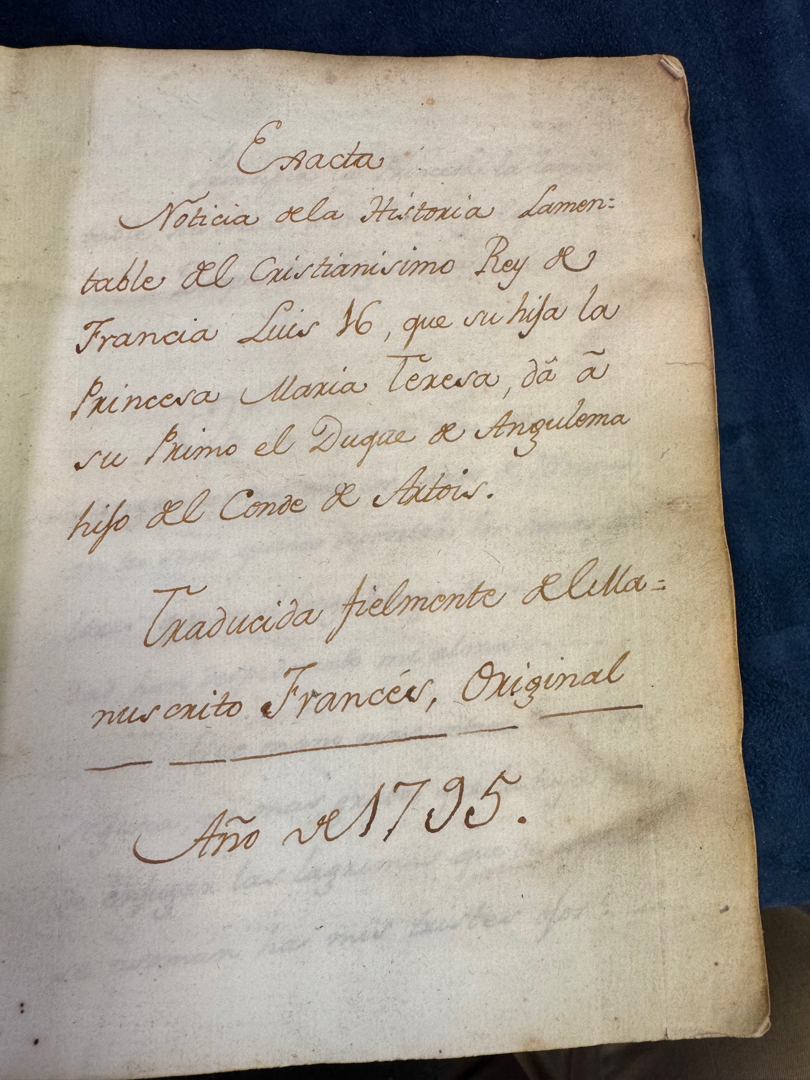 Exacta
Noticia dela Historia Lamen=
table del Cristianisimo Rey de
Francia Luis 16, que su hija la
Princesa Maria Teresa, dã ã
su Primo el Duque de Angulema
hijo del Conde de Artois.
Traducida fielmente del Ma=
nuscrito Francés, Original
Año de 1795.